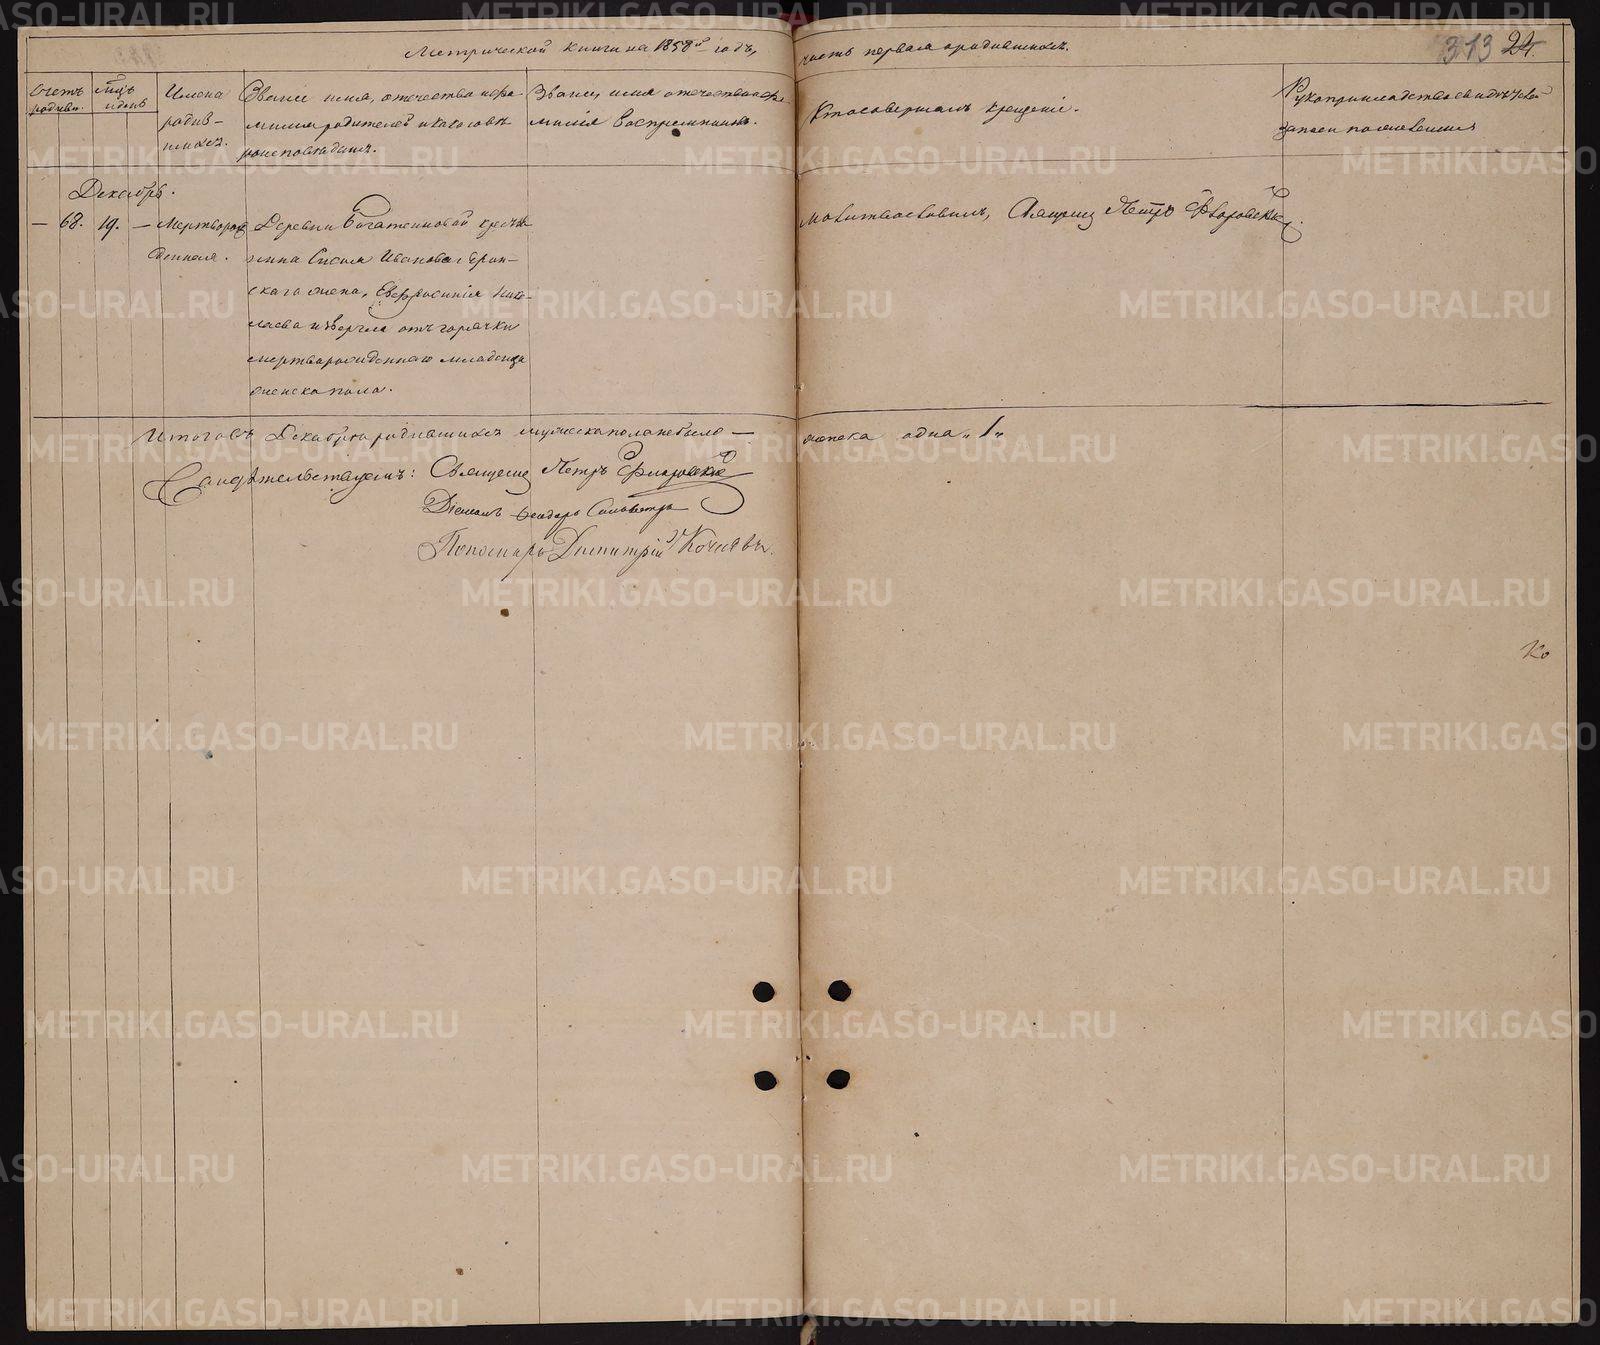 Метрической книги на 1858й годъ, часть первая о родившихся.
313 24.
Счетъ родивш.
Мцъ и день
Имена родив-
шихся.
Званіе имя, отечество и фа-
милія родителей и какого вѣ-
роисповѣданія.
Званіе, имя отечество и фа-
милія воспреемниковъ.
Кто совершалъ крещеніе.
Рукоприкладство свидѣтелей
записи по желанію
Декабрь.
— 68. 19. — Мертворож
денная.
Деревни крестья
нина Ивановаго
скаго жена, Евфросинія Нико-
лаева извергла отъ горячки
мертворожденнаго младенца
женска пола.
молитвословилъ, Священ Петръ
Итого въ Декабрѣ родившихся мужеска пола не было — женска одна „1„
Свидѣтельствуемъ: Священ Петръ
Діаконъ Феодоръ
Пономарь Димитрій
Ко
METRIKI.GASO-URAL.RU